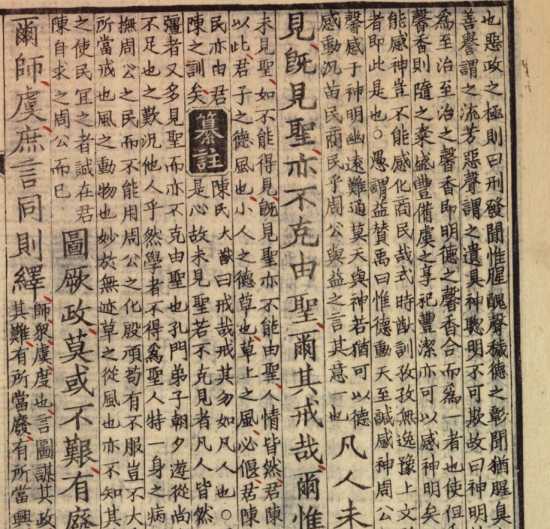 也惡政之極則曰刑發聞惟腥醜聲穢德之彰聞猶腥臭
善譽謂之流芳惡聲謂之遺具神聰明不可欺故曰神明
爲至治至治之馨香即明德之馨香合而爲一者也使但
馨香則隨之粢盛豐備虞之享祀豐潔亦可以感神明矣
能感神豈不能感化商民哉式時猷訓孜孜無逸豫上文
者即此是也○愚謂益贊禹曰惟德動天至諴感神周公
馨感于神明幽遠難通莫天與神若猶可以德
感動况苗民商民乎周公與益之言其意一也
凡人未
見既見聖亦不克由聖爾其戒哉爾惟
未見聖如不能得見既見聖亦不能由聖人情皆然君陳
以此君子之德風也小人之德草也草上之風必偃君陳
民亦由君
陳之訓矣
纂註
陳氏大猷曰戒哉戒其勿如凡人也○
是心故未見聖若不克見者凡人皆然
彊者又多見聖而亦不克由聖也孔門弟子朝夕遊從尚
不足也之歎况他人乎然學者不得爲聖人特一身之病
撫周公之民而不能用周公之化殷頑苟有不服豈不大
所當戒也風之動物也妙於無迹草之從風也亦不知其
之使民宜之者誠在君
陳自求之周公而已
圖厥政莫或不艱有廢
爾師虞庶言同則繹
師衆虞度也言圖謀其政
其難有所當廢有所當興